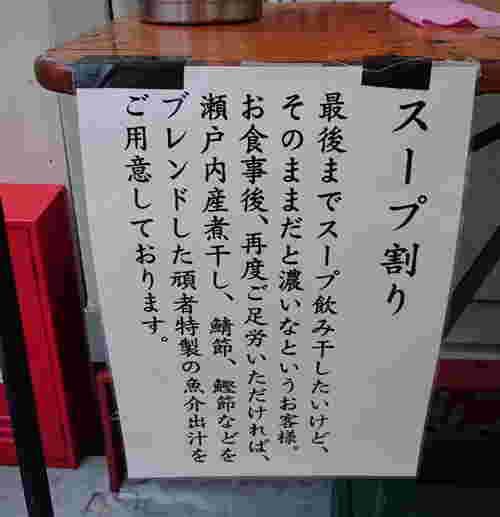 スープ割り
最後までスープ飲み干したいけど、
そのままだと濃いなというお客様。
お食事後、再度ご足労いただければ、
瀬戸内産煮干し、鯖節、鰹節などを
ブレンドした頑者特製の魚介出汁を
ご用意しております。